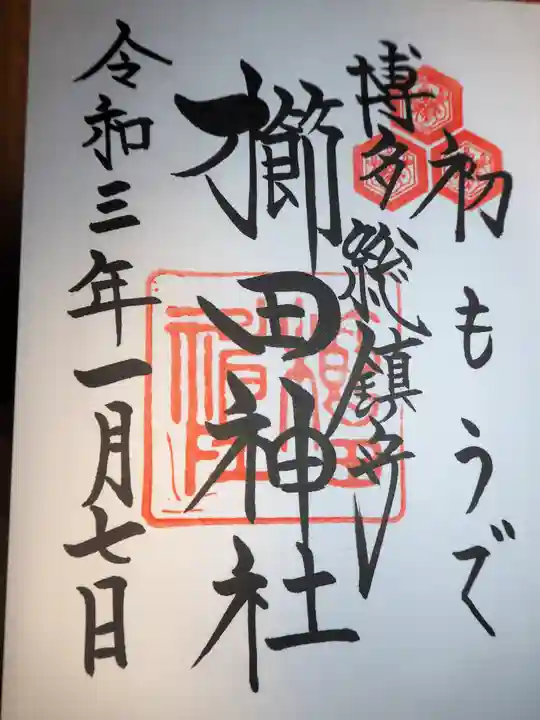 初もうで
博多総鎮守
櫛田神社
令和三年一月七日